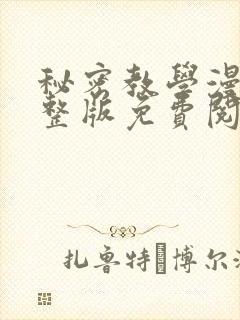 秘密教學漫
整版免費閱
扎魯特�博尔